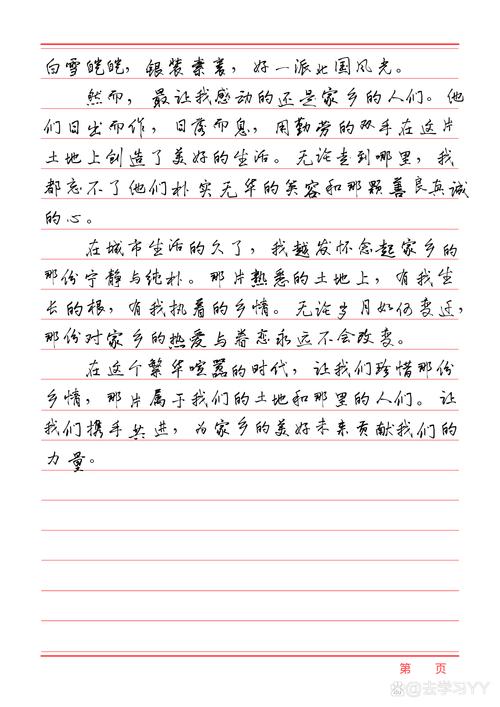 白雪皑皑，银装素裹，好一派北国风光。
然而，最让我感动的还是家乡的人们。他
们日出而作，日落而息，用勤劳的双手在这片
土地上创造了美好的生活。无论走到哪里，我
都忘不了他们朴实无华的笑容和那颗善良真诚
的心。
在城市生活的久了，我越发怀念起家乡的
那份宁静与纯朴。那片熟悉的土地上，有我生
长的根，有我执着的乡情。无论岁月如何变迁，
那份对家乡的热爱与眷恋永远不会改变。
在这个繁华喧嚣的时代，让我们珍惜那份
乡情，那片属于我们的土地和那里的人们。让
我们携手共进，为家乡的美好未来贡献我们的
力量。
第 页
@去学习YY